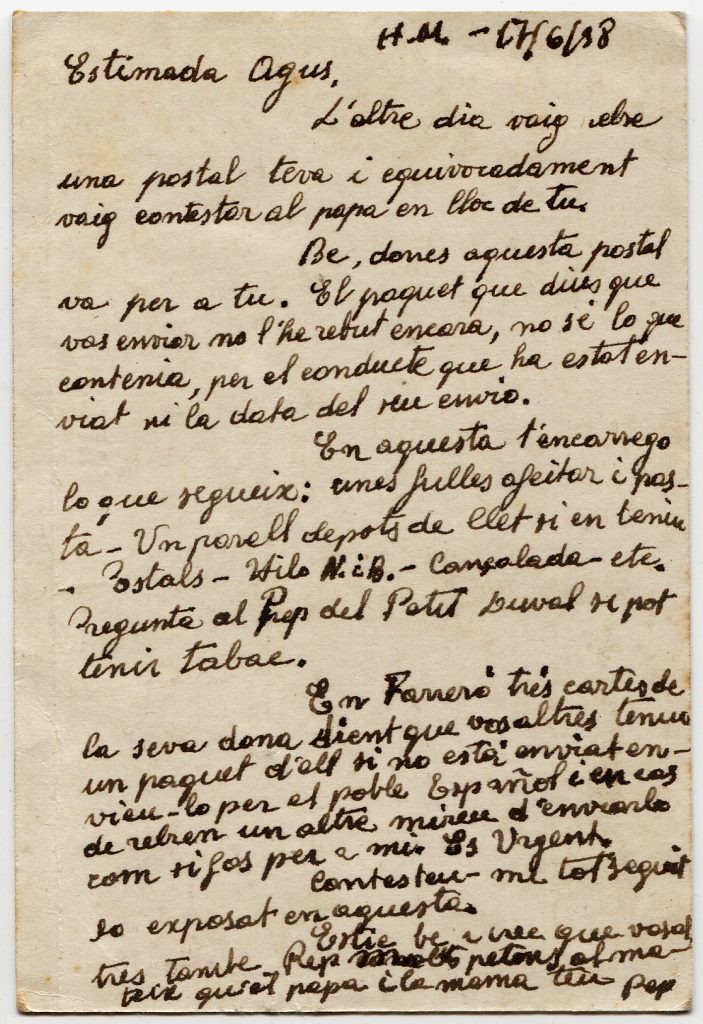 H.M. - 17/6/38
Estimada Agus,
L'altre dia vaig rebre
una postal teva i equivocadament
vaig contestar al papa en lloc de tu.
Be, doncs aquesta postal
va per a tu. El paquet que dius que
vas enviar no l'he rebut encara, no sé lo que
contenia, per el conducte que ha estat en-
viat ni la data del seu envio.
En aquesta t'encarrego
lo que segueix: unes fulles afeitar i pas-
ta - Un parell de pots de llet si en teniu
. Postals - Hilo N. i B. - Cançalada - etc.
Pregunta al Pep del Petit Duval si pot
tenir tabac.
En Farreró tres cartes de
la seva dona dient que vosaltres teniu
un paquet d'ell si no està enviat en-
vieu-lo per el poble Español i en cas
de rebren un altre mireu d'enviarlo
com si fos per a mi. Es Urgent.
Contesteu-me tot seguit
lo exposat en aquesta.
Estic be i crec que vosal
tres tambe. Rep petons al ma-
teix qu'el papa i la mama teu Pep